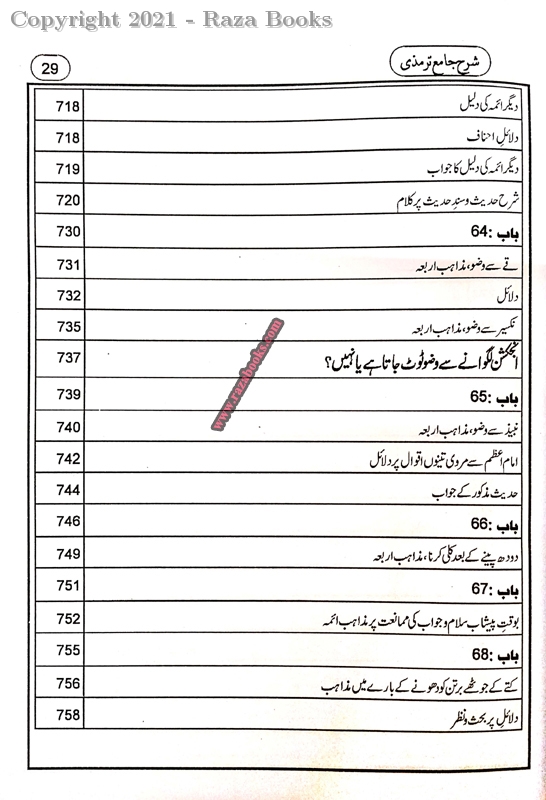 Copyright 2021 - Raza Books
شرح جامع ترمذی
29
دیگر ائمہ کی دلیل 718
دلائلِ احناف 718
دیگر ائمہ کی دلیل کا جواب 719
شرح حدیث و سندِ حدیث پر کلام 720
باب :64 730
قے سے وضو، مذاہب اربعہ 731
دلائل 732
نکسیر سے وضو، مذاہب اربعہ 735
انجکشن لگوانے سے وضو ٹوٹ جاتا ہے یا نہیں؟ 737
باب :65 739
نبیذ سے وضو، مذاہب اربعہ 740
امام اعظم سے مروی تینوں اقوال پر دلائل 742
حدیث مذکور کے جواب 744
باب :66 746
دودھ پینے کے بعد کلی کرنا، مذاہب اربعہ 749
باب :67 751
بوقتِ پیشاب سلام و جواب کی ممانعت پر مذاہب ائمہ 752
باب :68 755
کتے کے جوٹھے برتن کو دھونے کے بارے میں مذاہب 756
دلائل پر بحث و نظر 758
www.razabooks.com